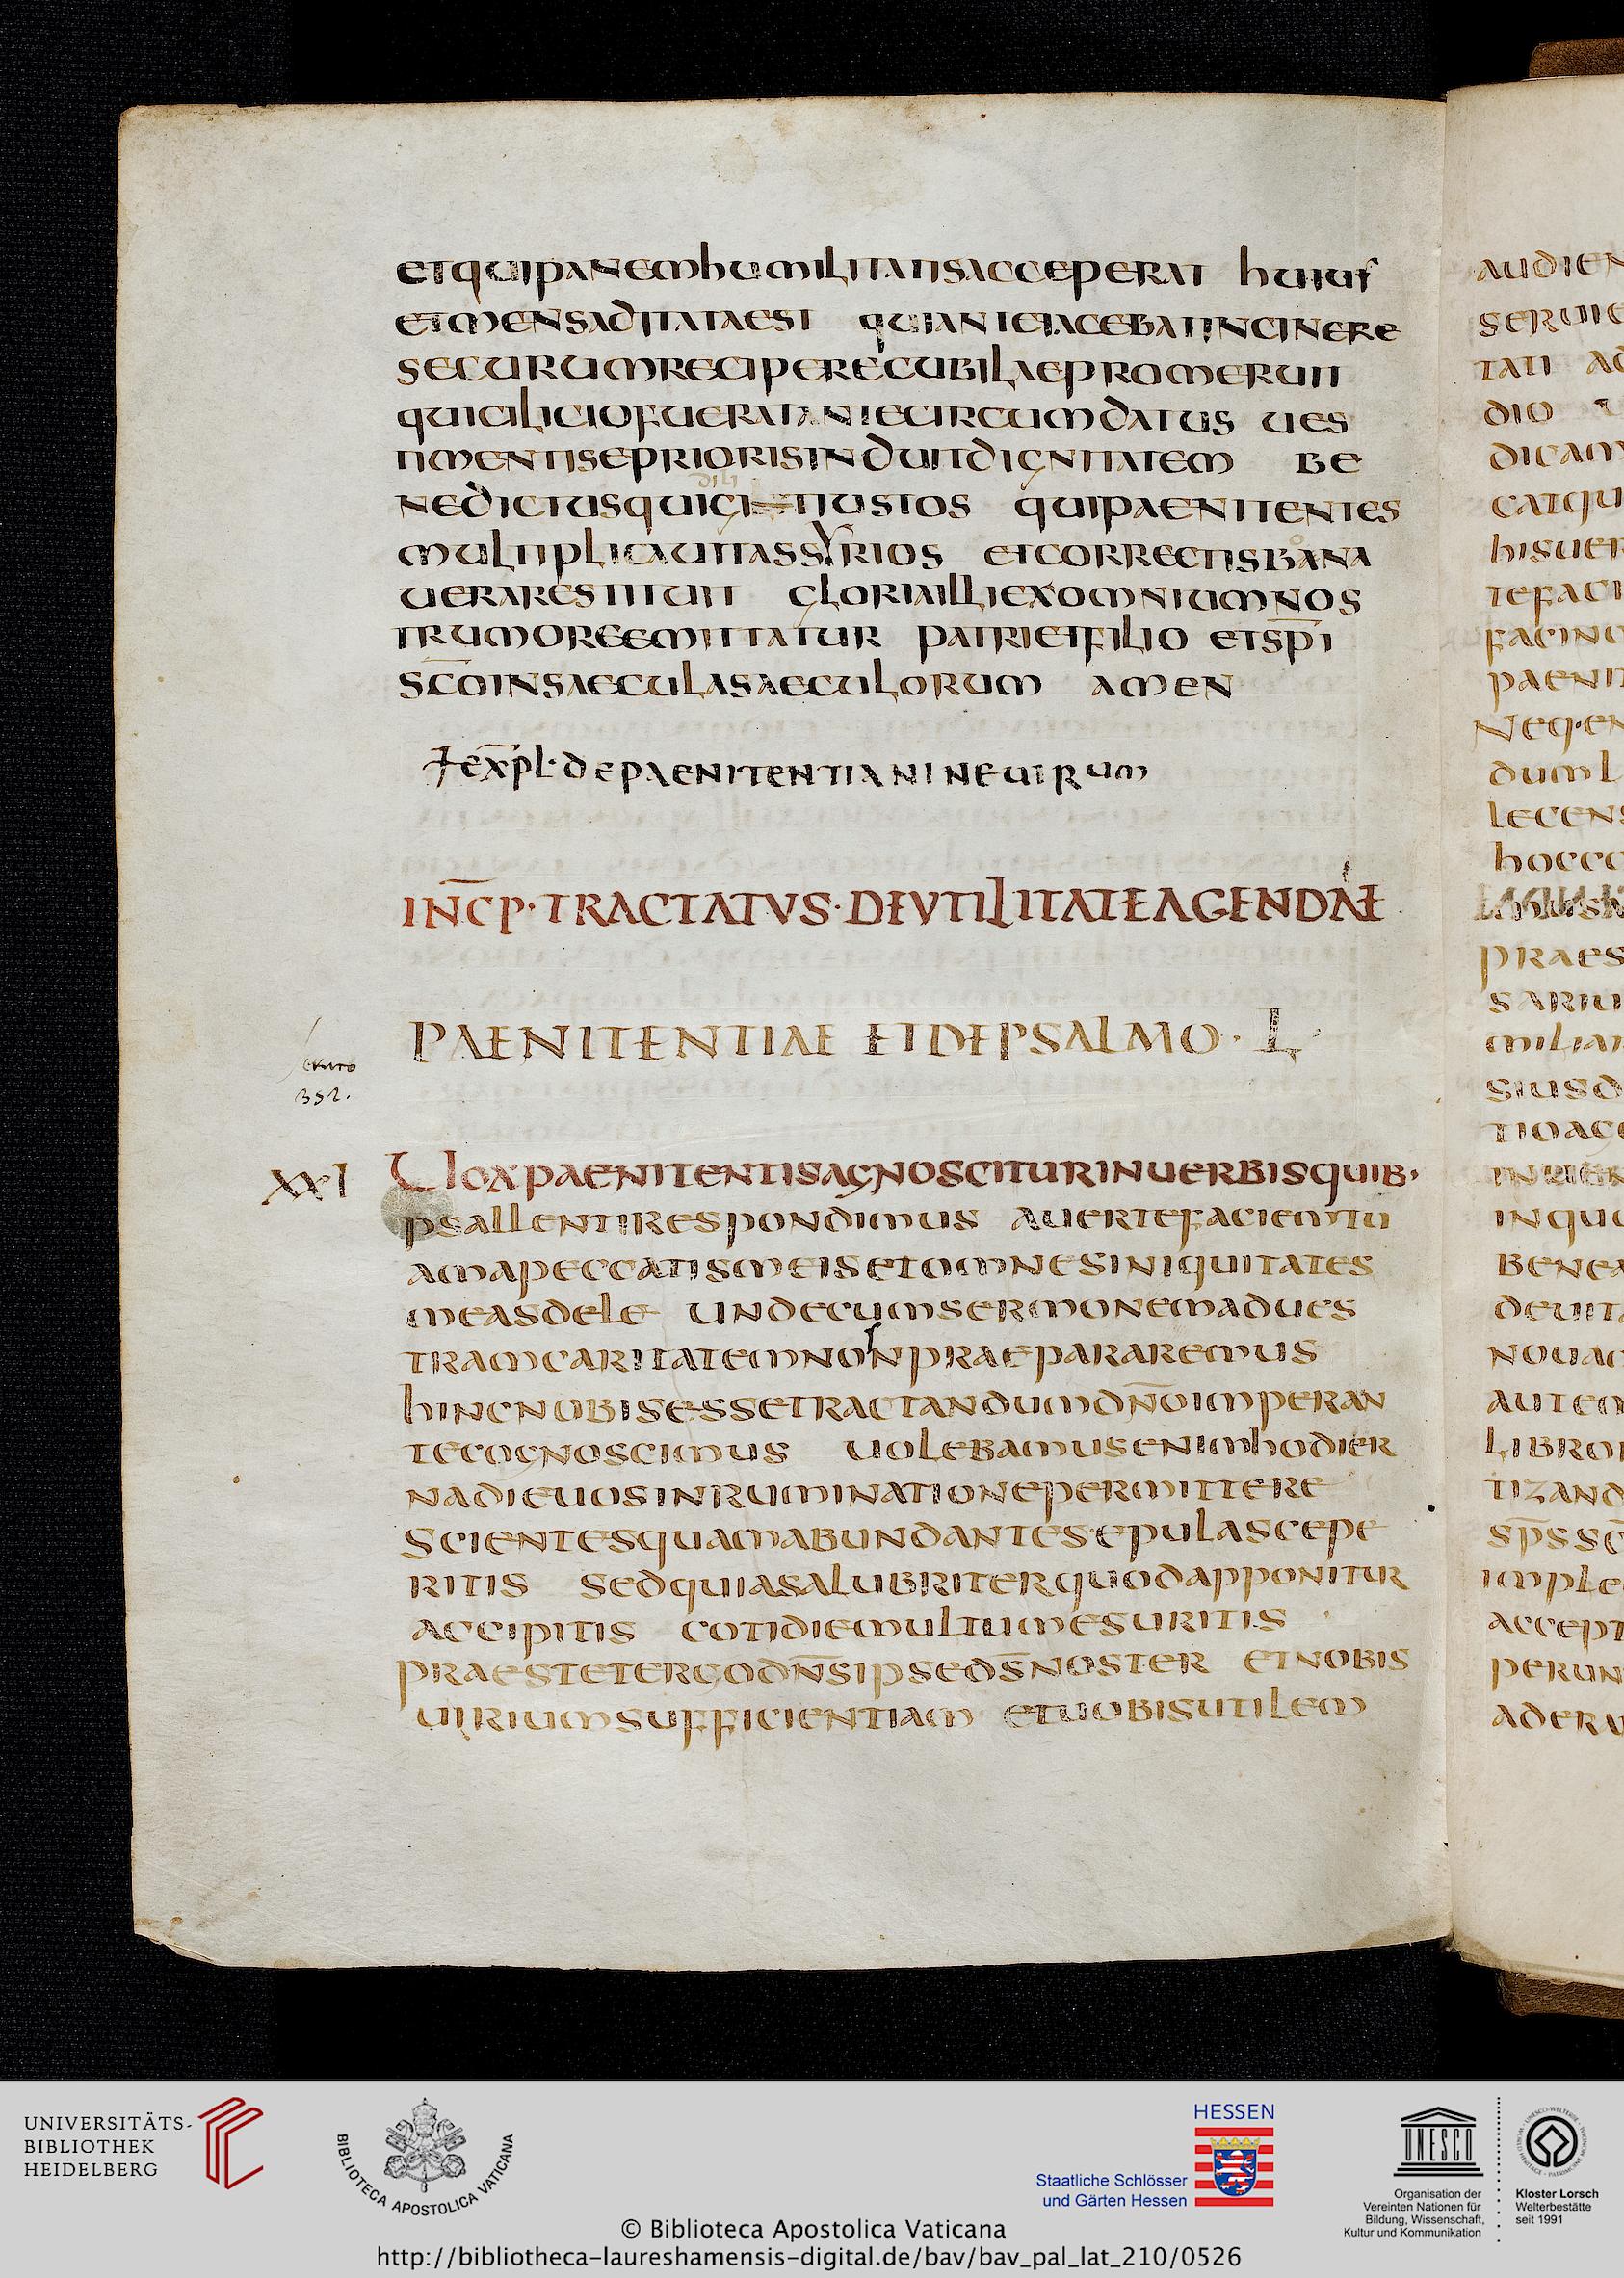 etquipanemhumilitatisacceperat huius
etmensaditataest quianteiacebatincinere
securumreciperecubilaepromeruit
quiciliciofueratantecircumdatus ues
timentiseprioris induitdignitatem be
nedictusqui iustos quipaenitentes
multiplicauitassyrios etcorrectisbana
uerarestituit gloriailliexomniumnos
trumoreemittatur patrietfilio etsp̅i
sc̅oinsaeculasaeculorum amen
exp̅l·depaenitentianineuitarum
INC̅P·TRACTATVS·DEVTILITATEAGENDAE
PAENITENTIAE ETDEPSALMO·L·
352.
XXI
Uoxpaenitentisagnosciturinuerbisquib·
psallentirespondimus auertefaciemtu
amapeccatismeisetomnesiniquitates
measdele undecumsermonemadues
tramcaritatemnonpraepararemus
hincnobisessetractandumdn̅oimperan
tecognoscimus uolebamusenimhodier
nadieuosinruminationepermittere
scientesquamabundantes·epulascepe
ritis sedquiasalubriterquodapponitur
accipitis cotidiemultumesuritis
praestetergodn̅sipseds̅noster etnobis
uiriumsufficientiam etuobisutilem
audien
seruie
tati ad
dio u
dicam
catqu
hisuer
tefaci
facino
paenit
Neq·en
duml
legens
hocco
praes
sariu
miliari
siusd
tioacc
inqu
benea
deuita
nouac
autem
libro
tizand
sp̅ssc̅
imple
accept
perun
aderu
UNIVERSITÄTS-
BIBLIOTHEK
HEIDELBERG
BIBLIOTECA APOSTOLICA VATICANA
HESSEN
Staatliche Schlösser
und Gärten Hessen
UNESCO
Organisation der
Vereinten Nationen für
Bildung, Wissenschaft,
Kultur und Kommunikation
Kloster Lorsch
Welterbestätte
seit 1991
© Biblioteca Apostolica Vaticana
http://bibliotheca-laureshamensis-digital.de/bav/bav_pal_lat_210/0526